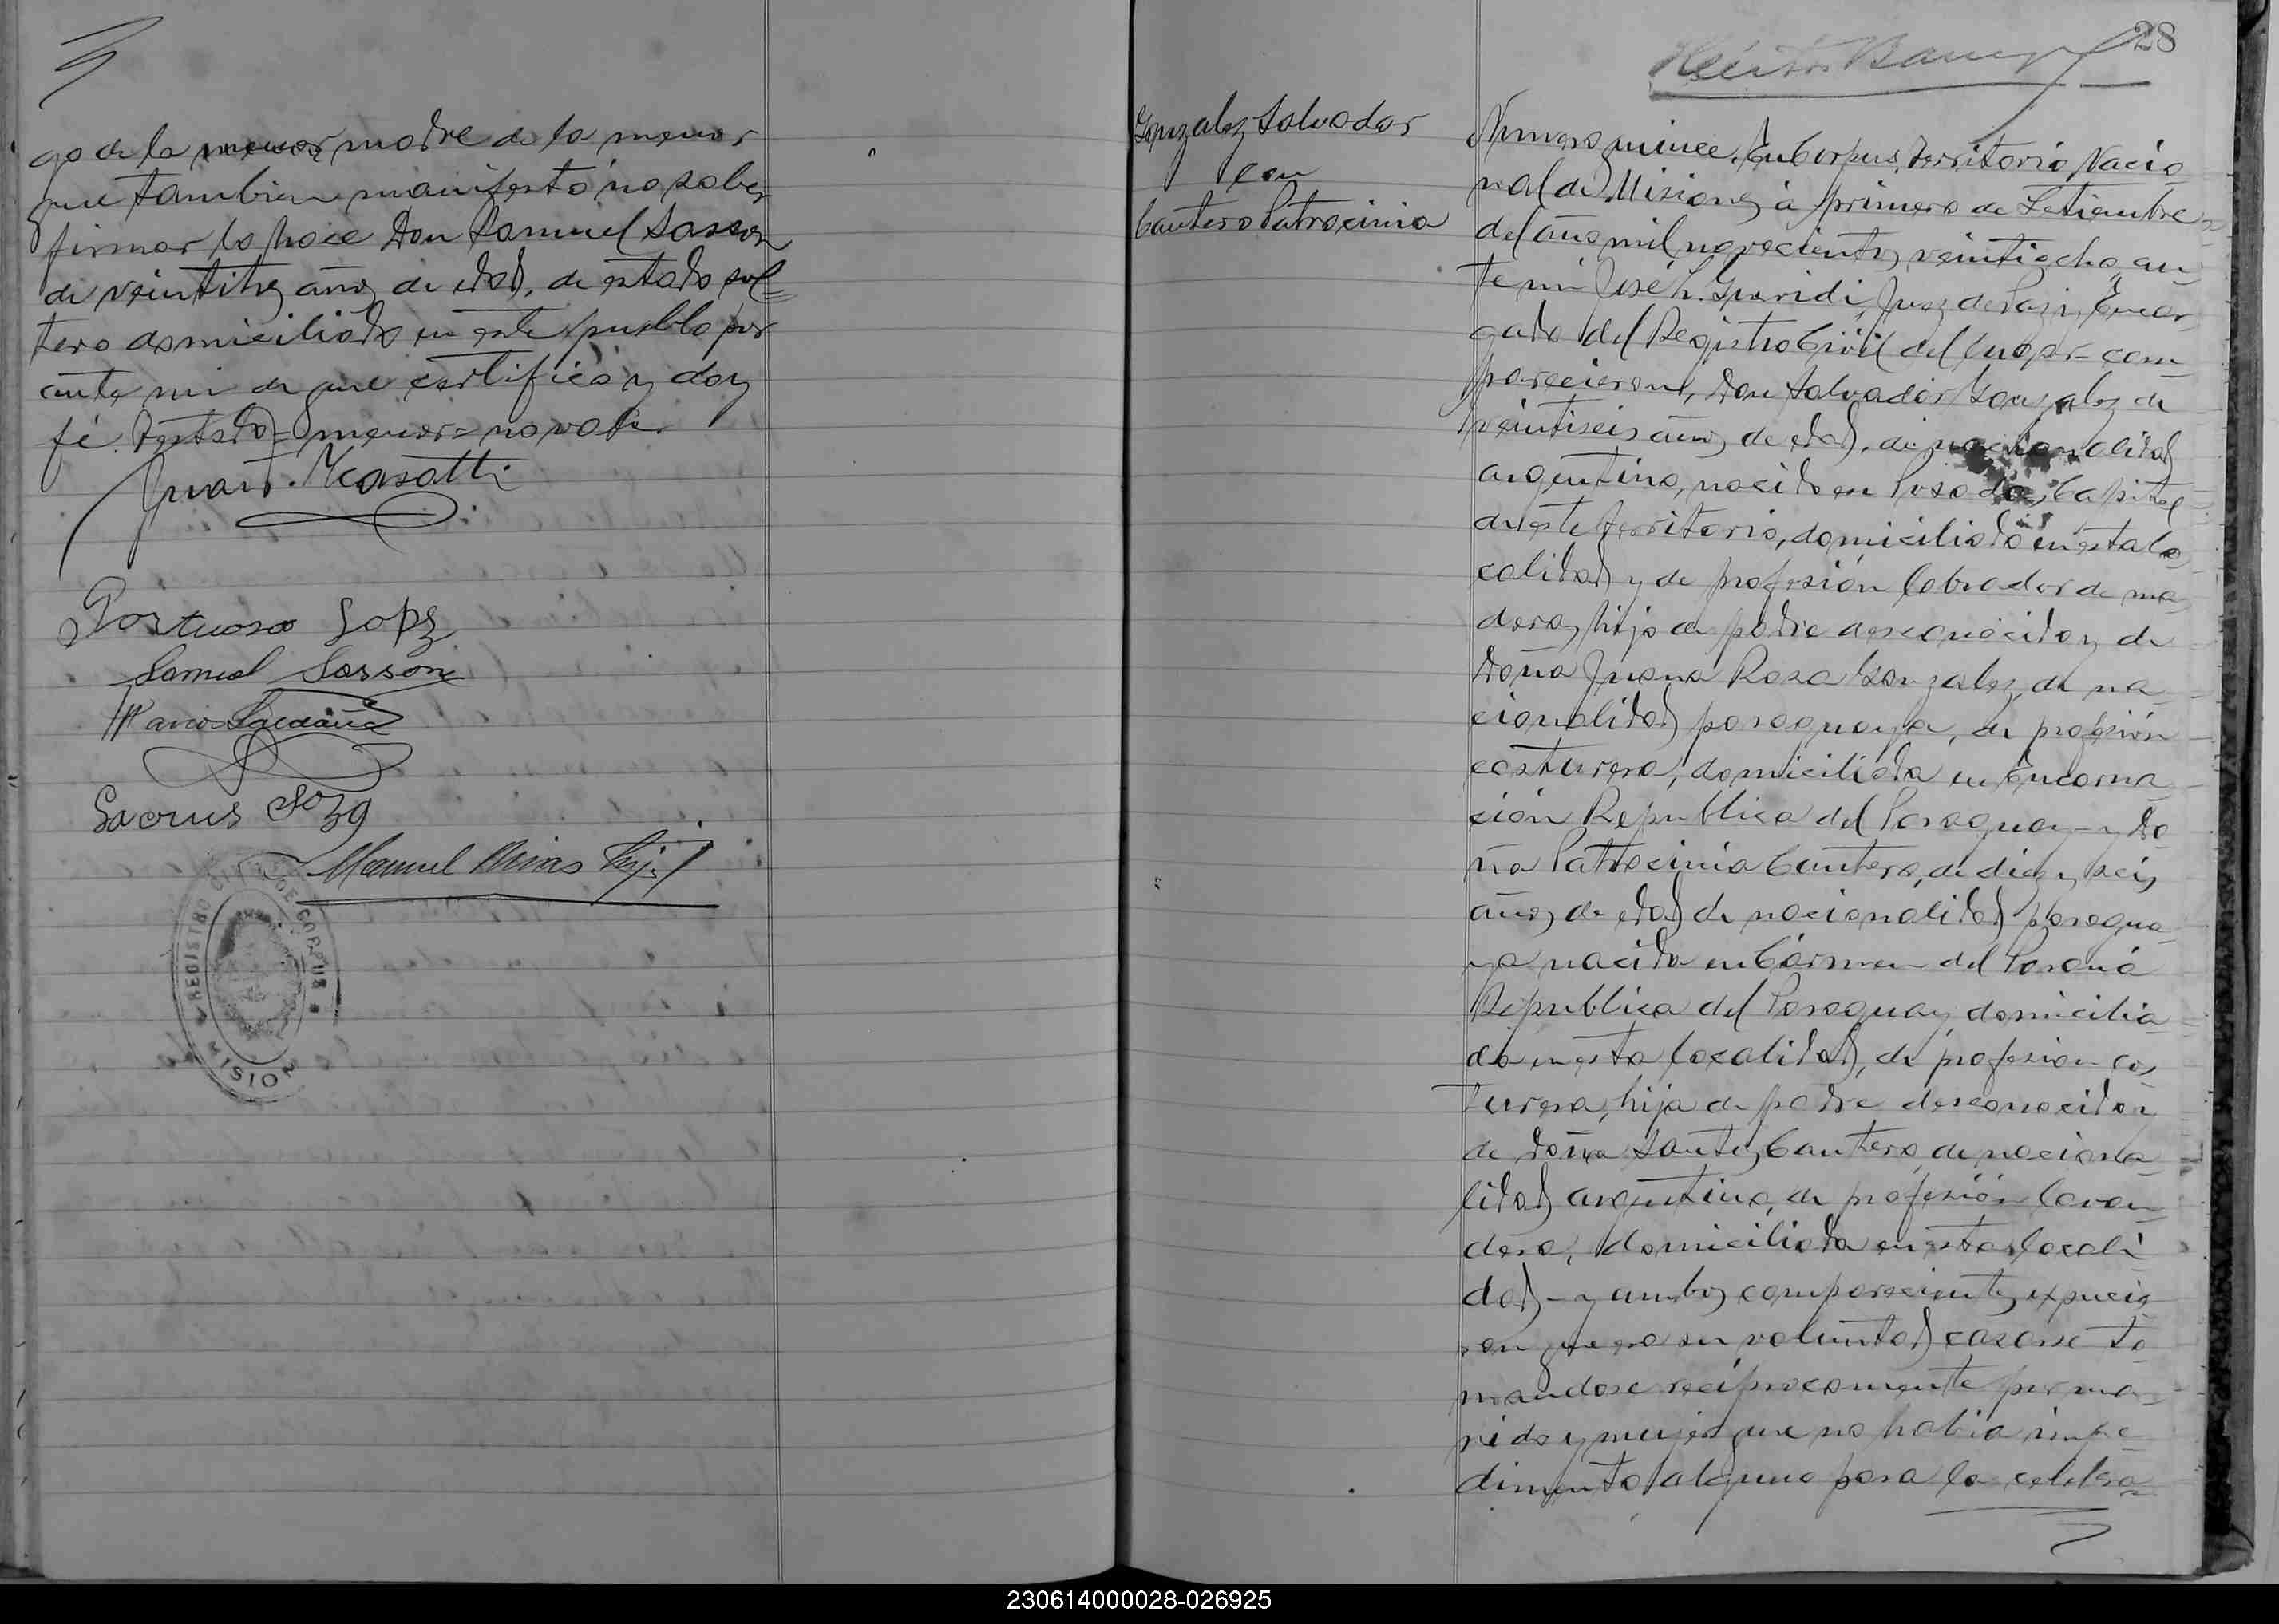 go de la menor madre de la menor
que tambien manifestó no saber
firmar lo hace Don Samuel Sasson
de veintitres años de edad, de estado sol=
tero domiciliado en este pueblo por
ante mi de que certifico y doy
fé. Testado= menor= no vale.
Juan T. Masatti
Samuel Sasson
Manuel Rivas hijo
REGISTRO CIVIL DE CORPUS
MISIONES
28
Gonzalez Salvador
con
Cantero Patrocinia
Numero quince. En Corpus, Territorio Nacio
nal de Misiones á primero de Setiembre
del año mil novecientos veintiocho, an
te mi José L. Juez de Paz y Encar
gado del Registro Civil del lugar= com
parecieron, Don Salvador Gonzalez de
veintiseis años de edad, de nacionalidad
argentina, nacido en Posadas, Capital
de este Territorio, domiciliado en esta lo
calidad y de profesión labrador de ma
dera, hijo de padre desconocido y de
Doña Juana Rosa Gonzalez, de na
cionalidad paraguaya, de profesión
costurera, domiciliada en Encarna
ción Republica del Paraguay= y Do
ña Patrocinia Cantero, de diez y seis
años de edad de nacionalidad paragua
ya nacida en Cármen del Paraná
Republica del Paraguay, domicilia
da en esta localidad, de profesion cos
turera, hija de padre desconocido y
de Doña Santos Cantero, de naciona
lidad argentina, de profesión lavan
dera, domiciliada en esta locali
dad= y ambos comparecientes expucie
ron que era su voluntad casarse to
mandose reciprocamente por ma
rido y mujer que no habia impe
dimento alguno para la celebra
230614000028-026925